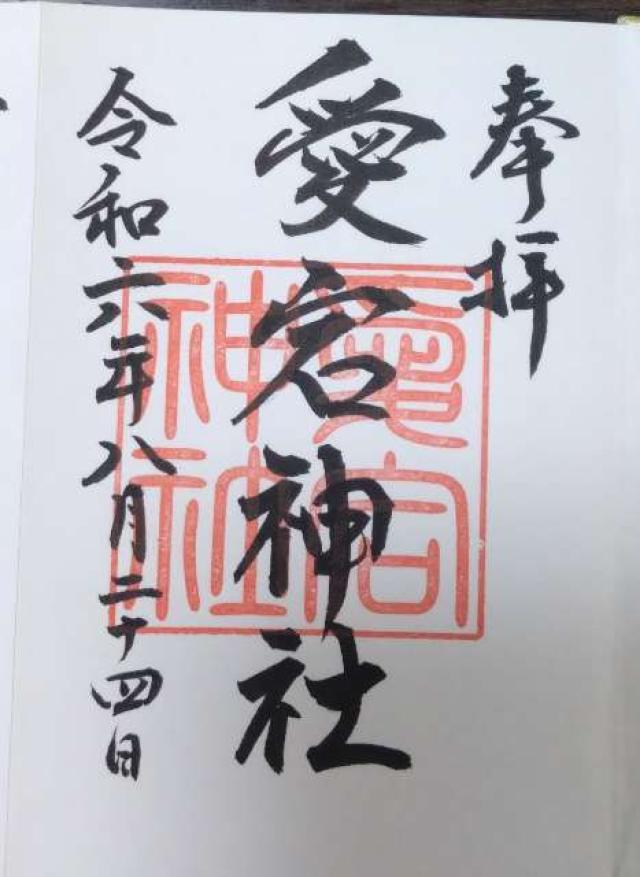 奉拝
愛宕神社
愛宕神社
令和六年八月二十四日